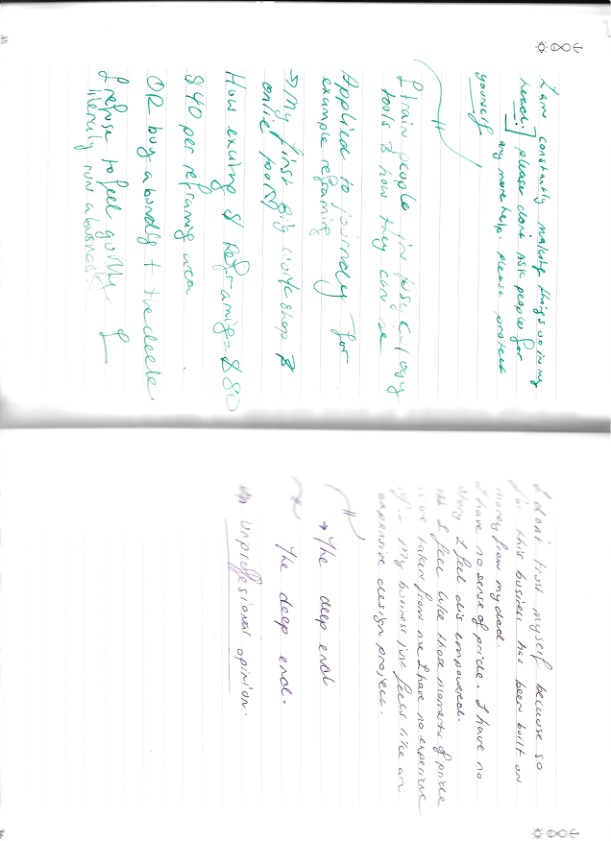 I am constantly making things up in my
head.] please dont ask people for
any more help. please protect
yourself
I train people in
tools & how they can be
Applied to journey for
example reframing
→ My first big workshop &
online post
How exciting $ Reframing = $80
$40 per reframing
OR buy a bundle + the deck
I refuse to feel guilty I
literally run a business
I dont trust myself because so
far this business has been built on
money from my dad.
I have no sense of pride. I have no
story I feel dis empowered.
I feel like those moments of pride
were taken from me I have no experience
my business just feels like an
expensive design project.
→ The deep end
The deep end.
Unproffesional opinion.